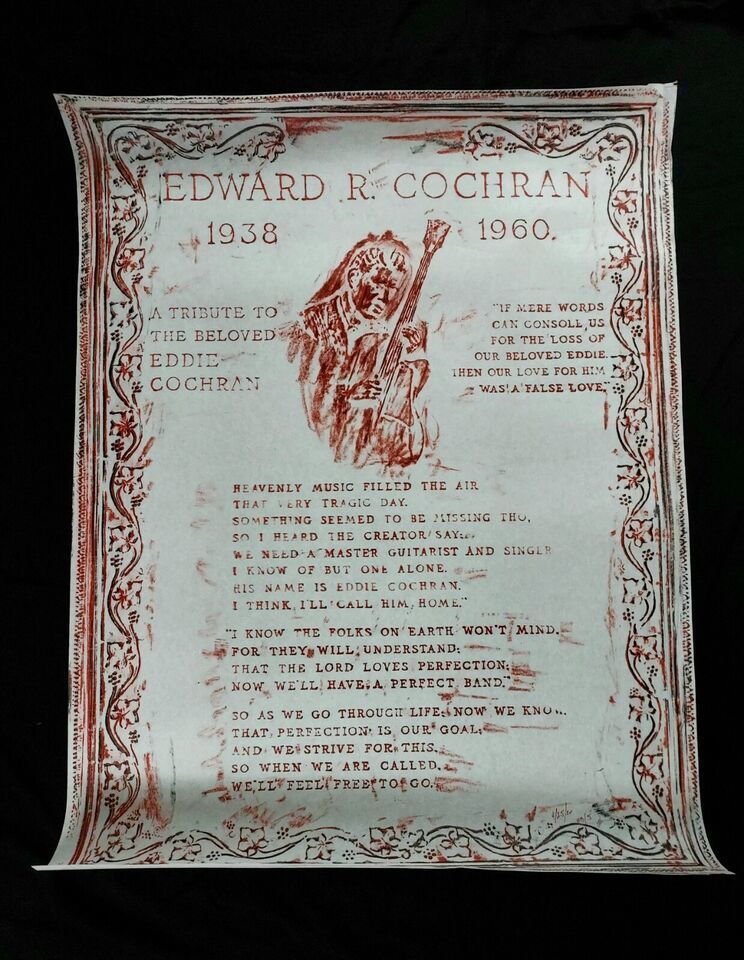 EDWARD R. COCHRAN
1938 1960.
A TRIBUTE TO
THE BELOVED
EDDIE
COCHRAN
"IF MERE WORDS
CAN CONSOLE US
FOR THE LOSS OF
OUR BELOVED EDDIE.
THEN OUR LOVE FOR HIM
WAS A FALSE LOVE."
HEAVENLY MUSIC FILLED THE AIR
THAT VERY TRAGIC DAY.
SOMETHING SEEMED TO BE MISSING THO,
SO I HEARD THE CREATOR SAY:
WE NEED A MASTER GUITARIST AND SINGER
I KNOW OF BUT ONE ALONE.
HIS NAME IS EDDIE COCHRAN.
I THINK I'LL CALL HIM HOME."
"I KNOW THE FOLKS ON EARTH WON'T MIND.
FOR THEY WILL UNDERSTAND;
THAT THE LORD LOVES PERFECTION;
NOW WE'LL HAVE A PERFECT BAND."
SO AS WE GO THROUGH LIFE; NOW WE KNOW.
THAT PERFECTION IS OUR GOAL;
AND WE STRIVE FOR THIS.
SO WHEN WE ARE CALLED.
WE'LL FEEL FREE TO GO.